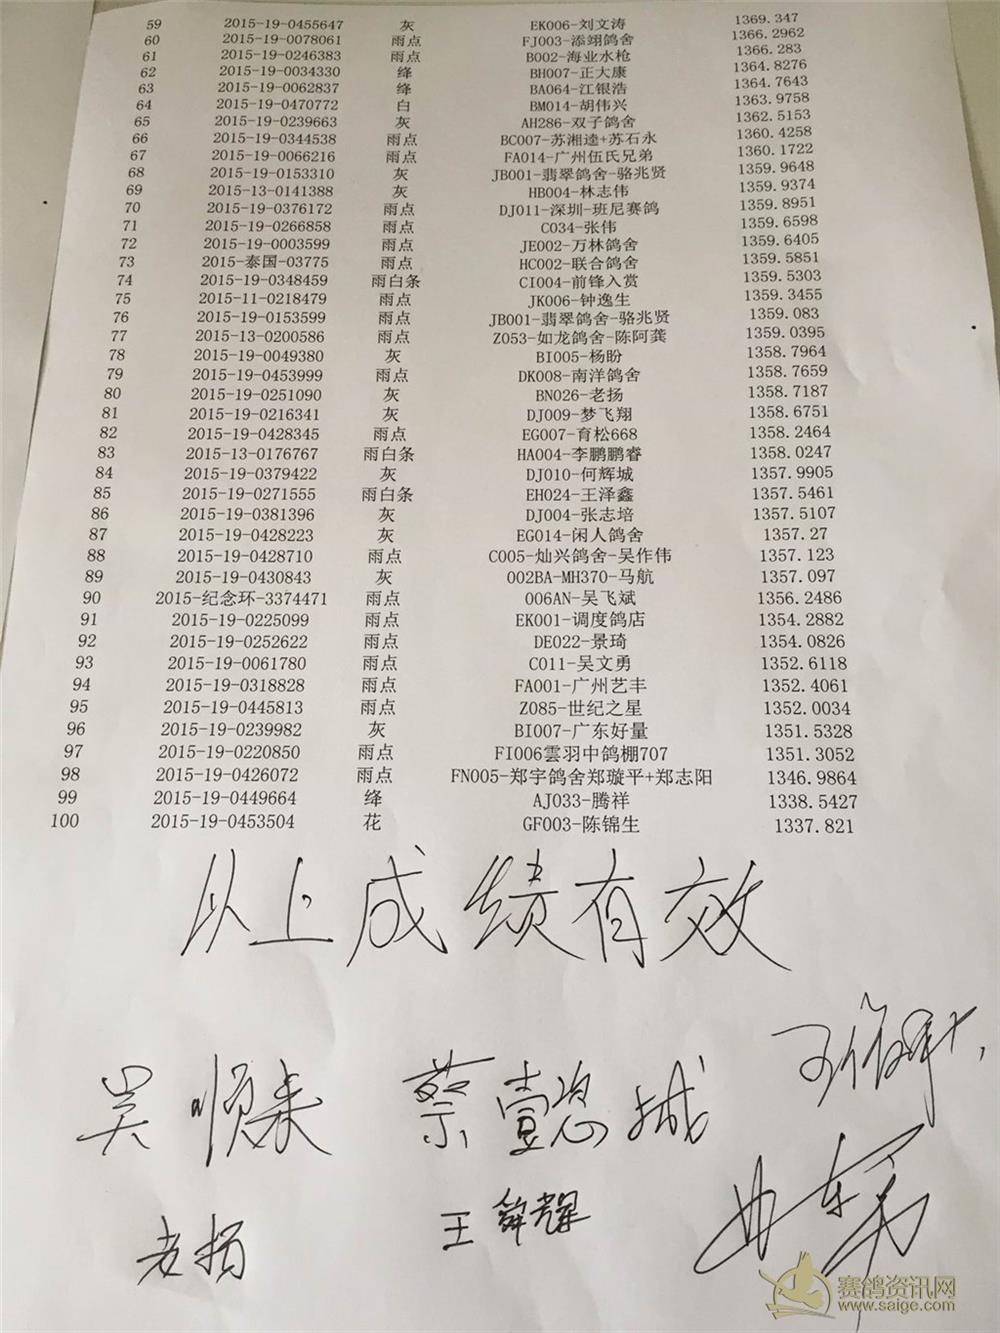 59 2015-19-0455647 灰 EK006-刘文涛 1369.347
60 2015-19-0078061 雨点 FJ003-添翊鸽舍 1366.2962
61 2015-19-0246383 雨点 B002-海业水枪 1366.283
62 2015-19-0034330 绛 BH007-正大康 1364.8276
63 2015-19-0062837 绛 BA064-江银浩 1364.7643
64 2015-19-0470772 白 BM014-胡伟兴 1363.9758
65 2015-19-0239663 灰 AH286-双子鸽舍 1362.5153
66 2015-19-0344538 雨点 BC007-苏湘逵+苏石永 1360.4258
67 2015-19-0066216 雨点 FA014-广州伍氏兄弟 1360.1722
68 2015-19-0153310 灰 JB001-翡翠鸽舍-骆兆贤 1359.9648
69 2015-13-0141388 灰 HB004-林志伟 1359.9374
70 2015-19-0376172 雨点 DJ011-深圳-班尼赛鸽 1359.8951
71 2015-19-0266858 雨点 C034-张伟 1359.6598
72 2015-19-0003599 雨点 JE002-万林鸽舍 1359.6405
73 2015-泰国-03775 雨点 HC002-联合鸽舍 1359.5851
74 2015-19-0348459 雨白条 CI004-前锋入赏 1359.5303
75 2015-11-0218479 雨点 JK006-钟逸生 1359.3455
76 2015-19-0153599 雨点 JB001-翡翠鸽舍-骆兆贤 1359.083
77 2015-13-0200586 雨点 Z053-如龙鸽舍-陈阿龚 1359.0395
78 2015-19-0049380 灰 BI005-杨盼 1358.7964
79 2015-19-0453999 雨点 DK008-南洋鸽舍 1358.7659
80 2015-19-0251090 灰 BN026-老扬 1358.7187
81 2015-19-0216341 灰 DJ009-梦飞翔 1358.6751
82 2015-19-0428345 雨点 EG007-育松668 1358.2464
83 2015-13-0176767 雨白条 HA004-李鹏鹏睿 1358.0247
84 2015-19-0379422 灰 DJ010-何辉城 1357.9905
85 2015-19-0271555 雨白条 EH024-王泽鑫 1357.5461
86 2015-19-0381396 灰 DJ004-张志培 1357.5107
87 2015-19-0428223 灰 EG014-闲人鸽舍 1357.27
88 2015-19-0428710 雨点 C005-灿兴鸽舍-吴作伟 1357.123
89 2015-19-0430843 灰 002BA-MH370-马航 1357.097
90 2015-纪念环-3374471 雨点 006AN-吴飞斌 1356.2486
91 2015-19-0225099 雨点 EK001-调度鸽店 1354.2882
92 2015-19-0252622 雨点 DE022-景琦 1354.0826
93 2015-19-0061780 雨点 C011-吴文勇 1352.6118
94 2015-19-0318828 雨点 FA001-广州艺丰 1352.4061
95 2015-19-0445813 雨点 Z085-世纪之星 1352.0034
96 2015-19-0239982 灰 BI007-广东好量 1351.5328
97 2015-19-0220850 雨点 FI006雲羽中鸽棚707 1351.3052
98 2015-19-0426072 雨点 FN005-郑宇鸽舍郑璇平+郑志阳 1346.9864
99 2015-19-0449664 绛 AJ033-腾祥 1338.5427
100 2015-19-0453504 花 GF003-陈锦生 1337.821
以上成绩有效
吴顺来 蔡壹 城
老扬 王舜耀
赛鸽资讯网
www.saige.com